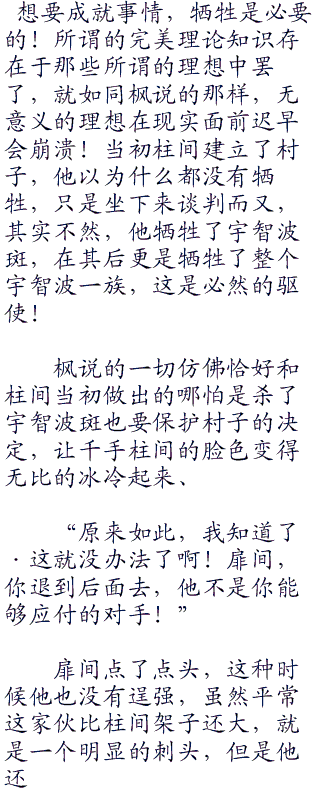 想要成就事情，牺牲是必要
的！所谓的完美理论知识存
在于那些所谓的理想中罢
了，就如同枫说的那样，无
意义的理想在现实面前迟早
会崩溃！当初柱间建立了村
子，他以为什么都没有牺
牲，只是坐下来谈判而又，
其实不然，他牺牲了宇智波
斑，在其后更是牺牲了整个
宇智波一族，这是必然的驱
使！
枫说的一切仿佛恰好和
柱间当初做出的哪怕是杀了
宇智波斑也要保护村子的决
定，让千手柱间的脸色变得
无比的冰冷起来、
“原来如此，我知道了
·这就没办法了啊！扉间，
你退到后面去，他不是你能
够应付的对手！”
扉间点了点头，这种时
候他也没有逞强，虽然平常
这家伙比柱间架子还大，就
是一个明显的刺头，但是他
还